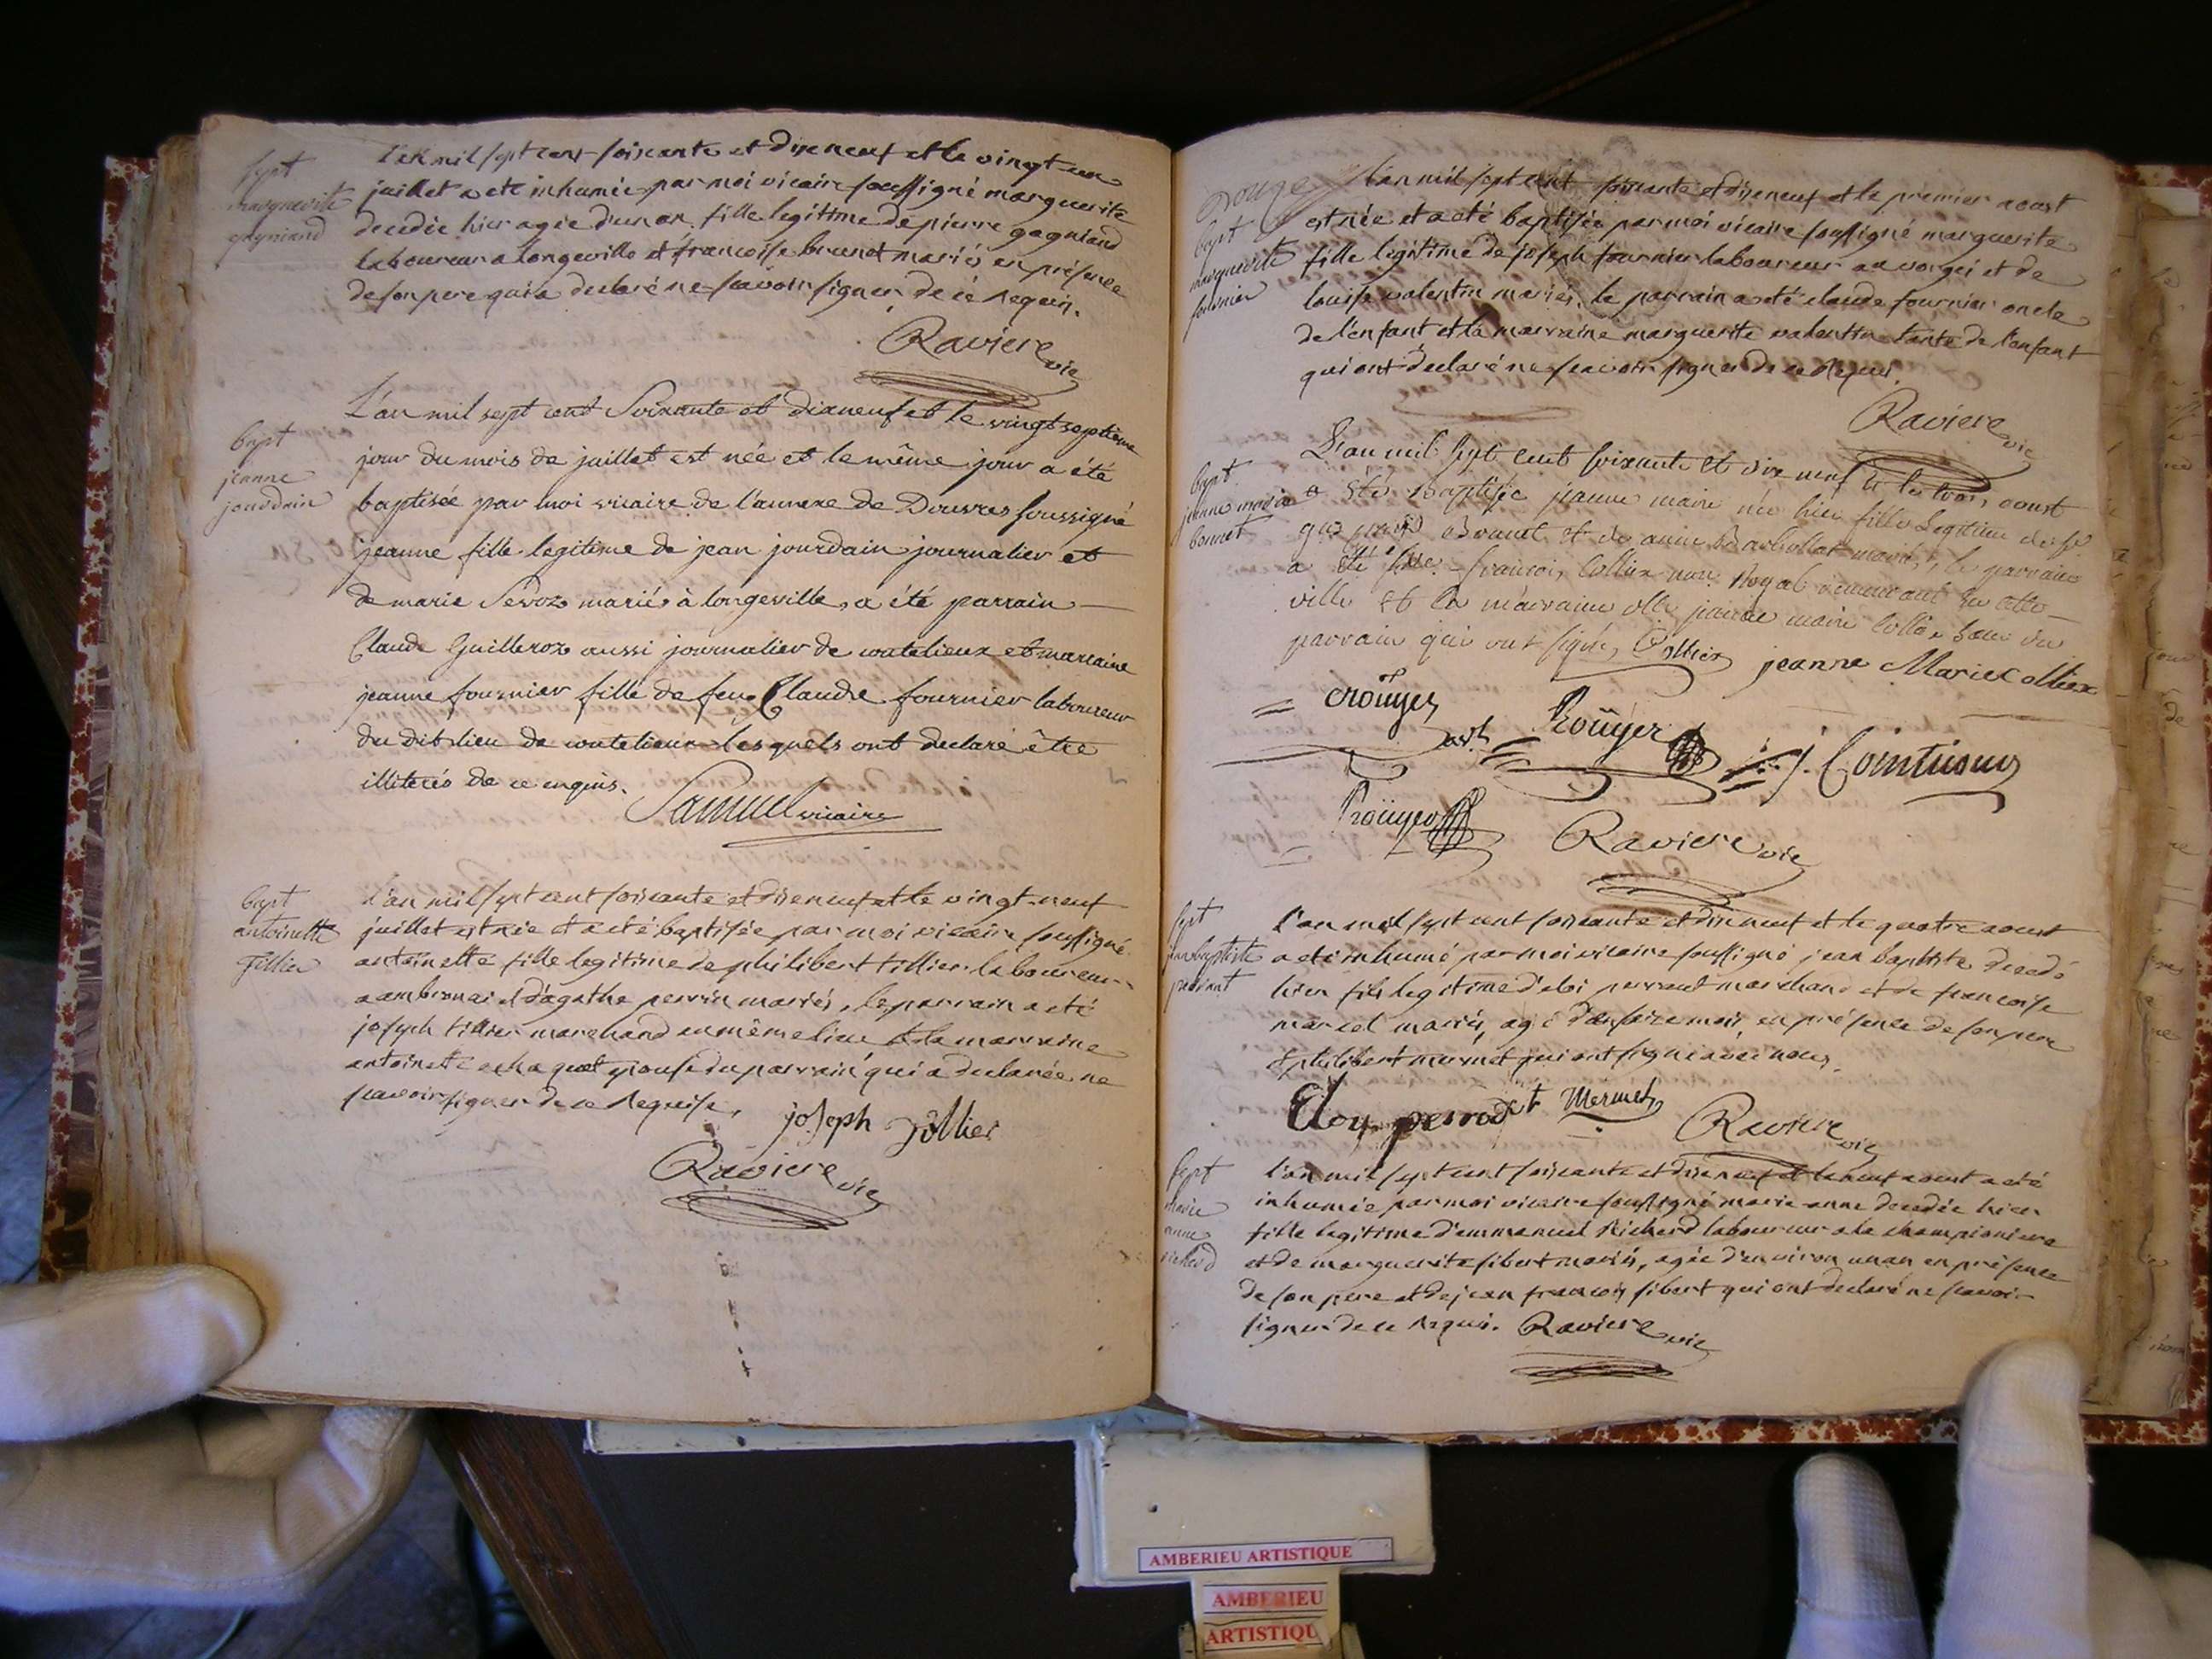 sept
marguerite
gagniand
l'an mil sept cent soixante et dixneuf et le vingt un
juillet a ete inhumée par moi vicaire soussigné marguerite
decedée hier agée d'un an fille legitime de pierre gagniand
laboureur a longeville et francoise brunet mariés en présence
de son pere qui a declaré ne scavoir signer de ce requis.
Raviere vic
bapt
jeanne
jourdain
L'an mil sept cent soixante et dixneuf et le vingt septieme
jour du mois de juillet est née et le même jour a été
baptisée par moi vicaire de l'annexe de Douvres soussigné
jeanne fille legitime de jean jourdain journalier et
de marie Sévoz mariés à longeville, a été parrain
Claude Guilleroz aussi journalier de coutelieux et marraine
jeanne fournier fille de feu Claude fournier laboureur
du dit lieu de coutelieux lesquels ont declaré être
illiterés de ce enquis.
Samuel vicaire
bapt
antoinette
Tillier
l'an mil sept cent soixante et dixneuf et le vingt-neuf
juillet est née et a eté baptisée par moi vicaire soussigné
antoinette fille legitime de philibert tillier laboureur
a ambronai et d'agathe perrin mariés, le parrain a eté
joseph tillier marchand en même lieu et la marraine
antoinette epouse du parrain qui a declarée ne
scavoir signer de ce requise,
joseph Tillier
Raviere vic
bapt
marguerite
fournier
l'an mil sept cent soixante et dixneuf et le premier aoust
est née et a eté baptisée par moi vicaire soussigné marguerite
fille legitime de joseph fournier laboureur au vorgei et de
louise valentin mariés, le parrain a eté claude fournier oncle
de l'enfant et la marraine marguerite valentin tante de l'enfant
qui ont declaré ne scavoir signer de ce requis.
Raviere vic
bapt
jeanne marie
bonnet
L'an mil sept cent soixante et dix neuf et le trois aoust
a été baptisée jeanne marie née hier fille legitime de
bonnet et de anne mariés, le parrain
a été françois Colliex not. Royal demeurant en cette
ville et la marraine dlle jeanne marie Colliex soeur du
parrain qui ont signé, Colliex jeanne Marie Colliex
Roüyer
Roüyer
Raviere vic
sept
jean baptiste
l'an mil sept cent soixante et dixneuf et le quatre aoust
a eté inhumé par moi vicaire soussigné jean baptiste decedé
hier fils legitime d'eloi marchand et de francoise
marcel mariés, agé d'onze mois, en présence de son pere
et philibert mermet qui ont signé avec nous.
Eloy perrodet Mermet
Raviere vic
sept
Marie
anne
richerd
l'an mil sept cent soixante et dixneuf et le neuf aoust a eté
inhumée par moi vicaire soussigné marie anne decedée hier
fille legitime d'emmanuel Richerd laboureur a la championiere
et de marguerite sibert mariés, agée d'environ un an en présence
de son pere et de jean francois sibert qui ont declaré ne scavoir
signer de ce requis. Raviere vic
AMBERIEU ARTISTIQUE
AMBERIEU
ARTISTIQU